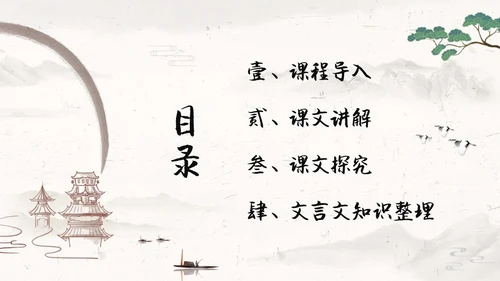 目录
壹、课程导入
贰、课文讲解
叁、课文探究
肆、文言文知识整理